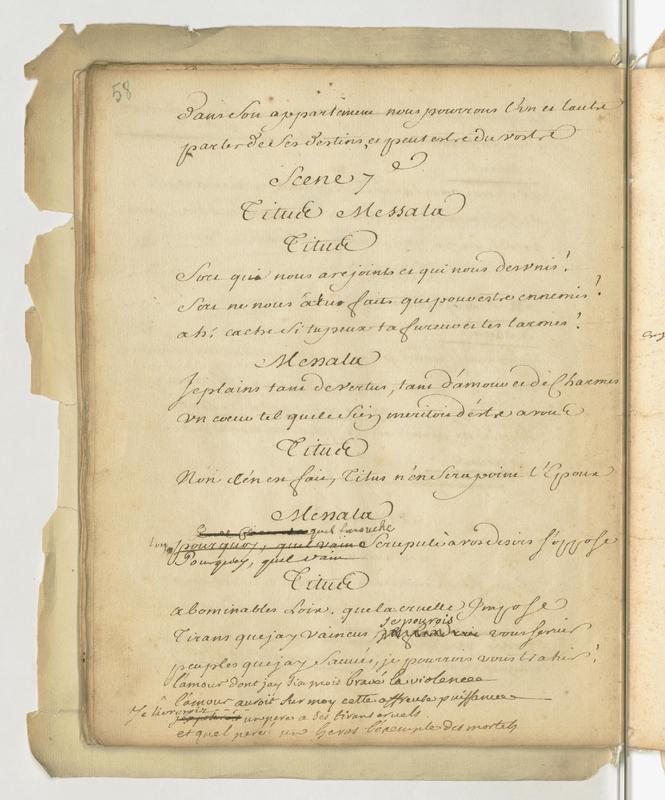 58
dans son appartement nous pourrons l'un et l'autre
parler de ses destins, et peut estre du vostre
Scene 7e
Titus Messala
Titus
Sort qui nous a rejoints et qui nous desunis!
Sort ne nous a tu faits que pour estre ennemis?
ah! cache si tu peux ta fureur et tes larmes!
Messala
Je plains tant de vertus, tant d'amour et de Charmes
un coeur tel que le sien meritoit d'estre a vous
Titus
Non c'en en fait, Titus n'en sera point l'Epoux
Messala
quel farouche
pourquoy, quel vain Scrupule a vos desirs s'oppose
Pourquoy, quel vain
Titus
abominables Loix, que la cruelle Impose
je pourois
Tirans que jay vaincus vous servir
peuples que jay sauvés, je pourrois vous trahir!
l'amour dont jay six mois bravé la violence
l'amour auroit sur moy cette affreuse puissance
Je livrerois un pere a ses tirans cruels
et quel pere? un heros l'exemple des mortels